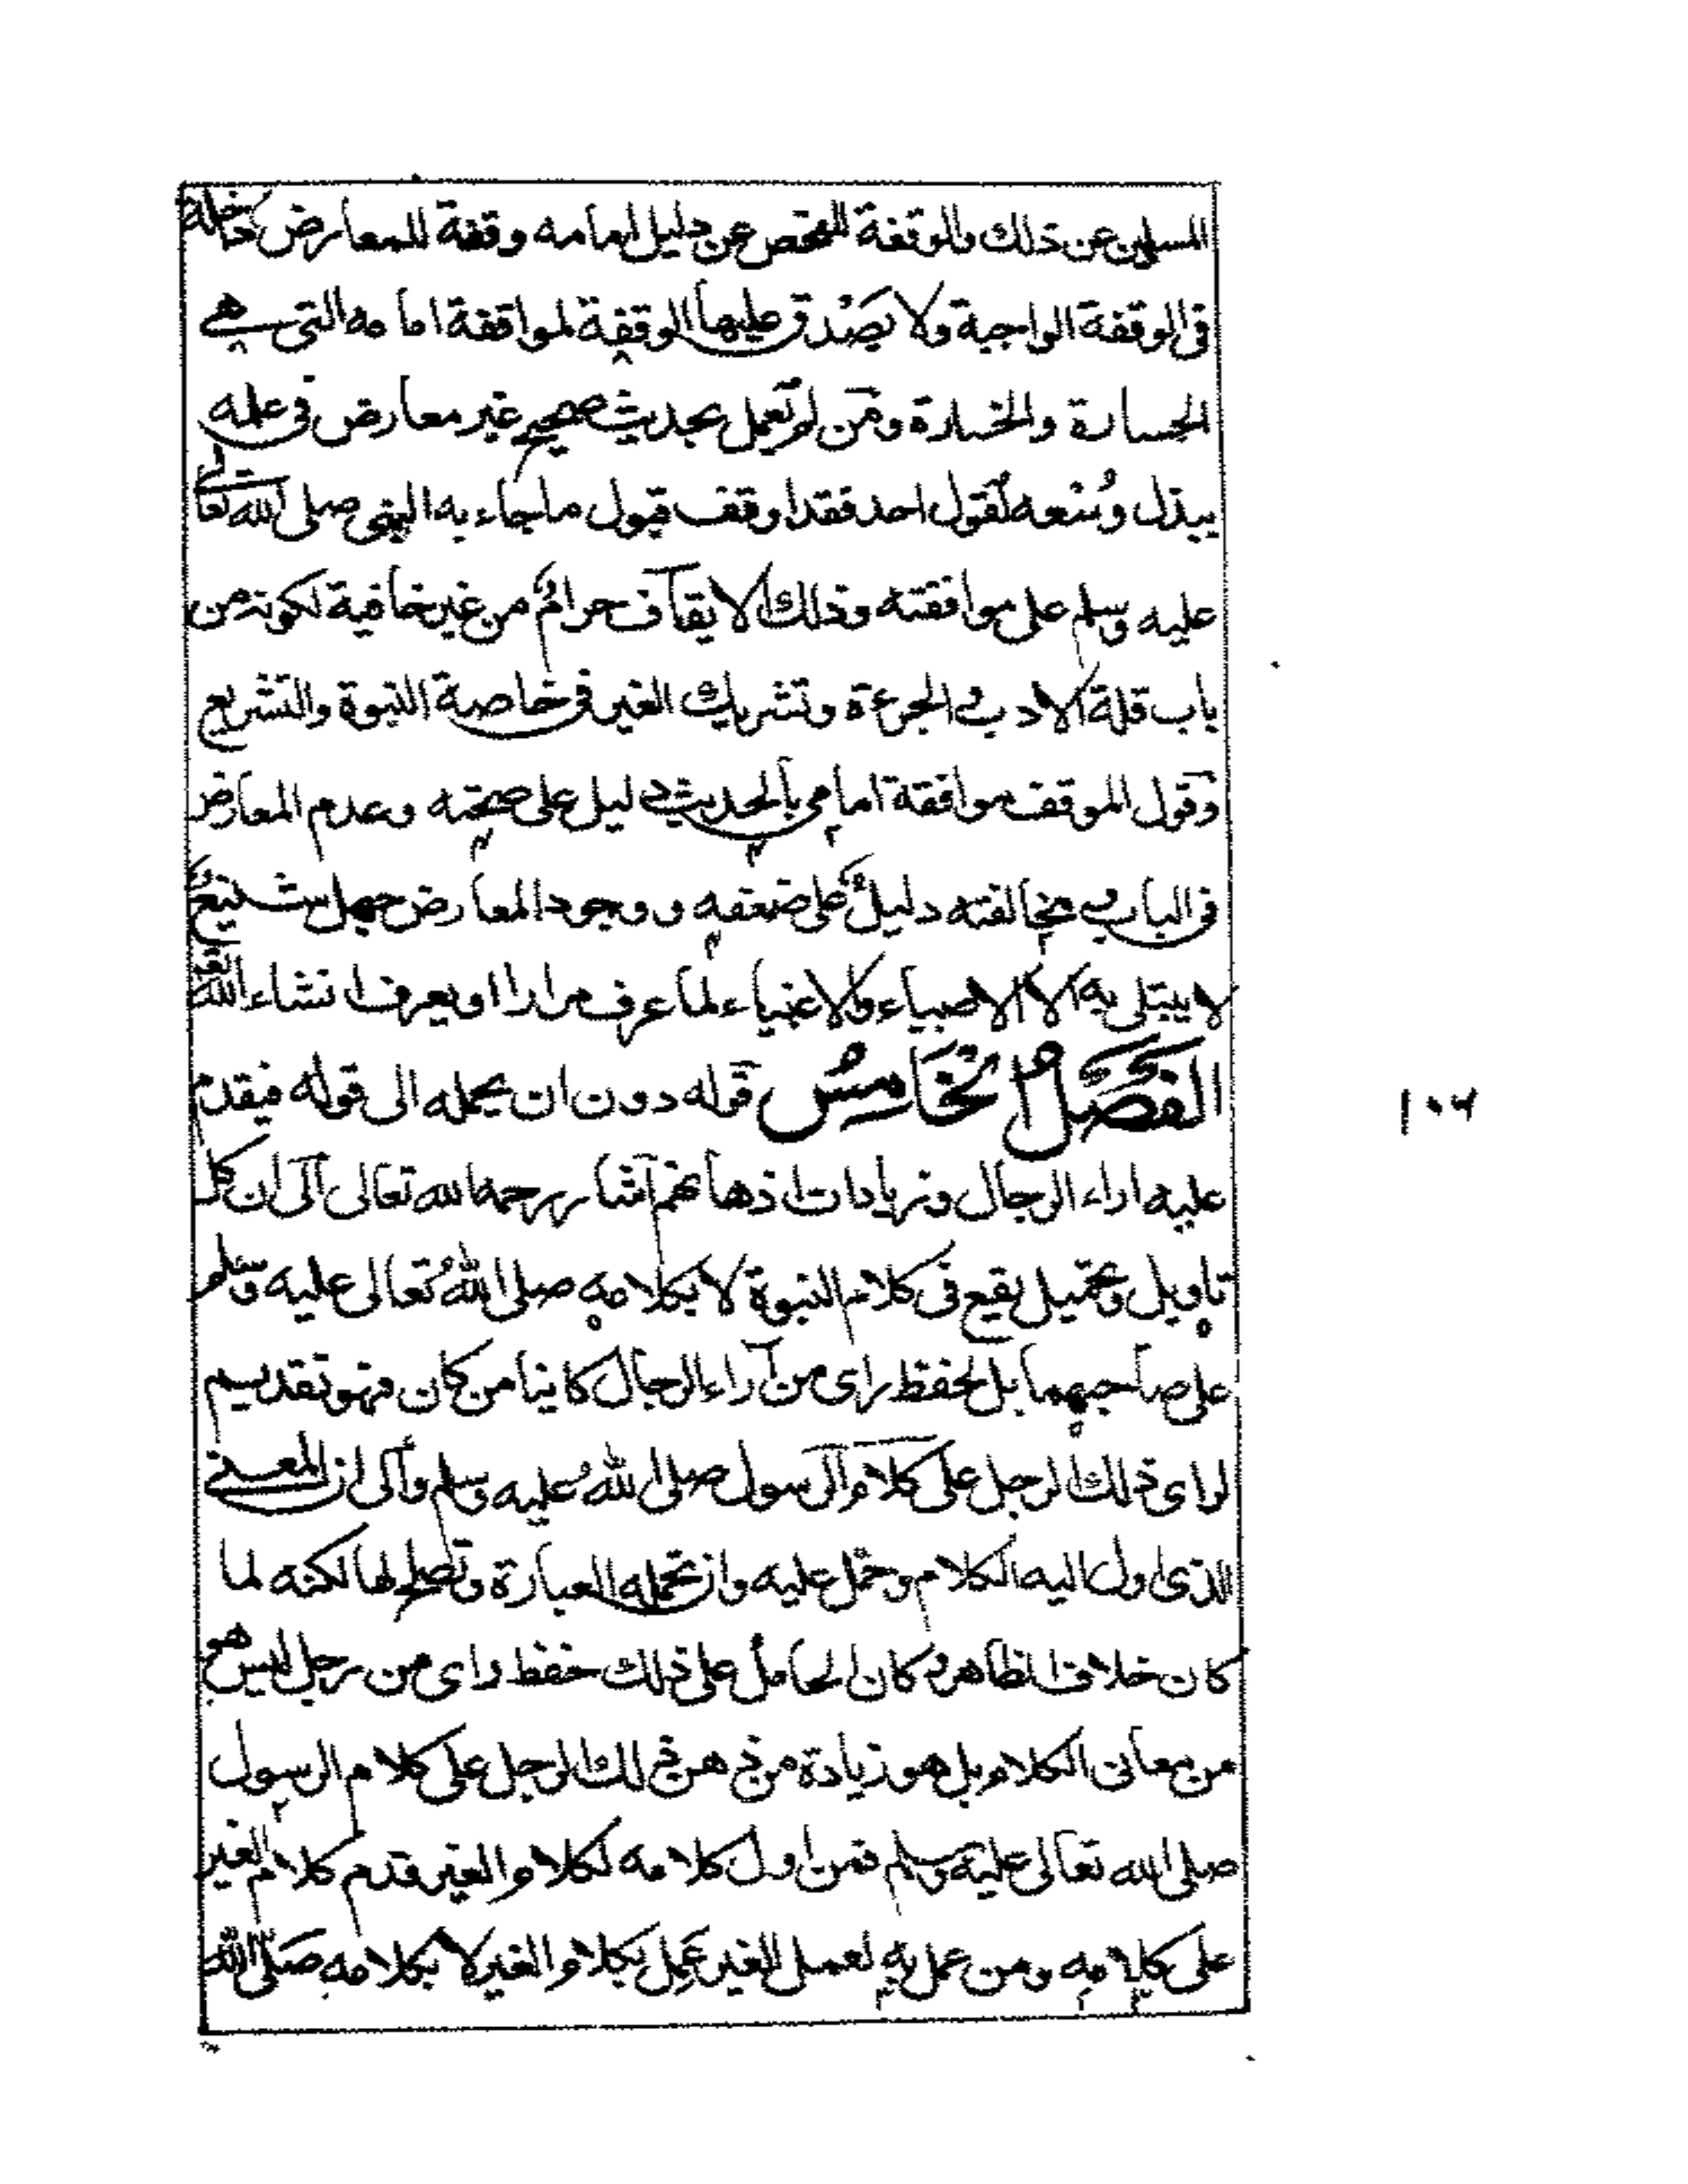 المسلمين عن ذلك والوقفة للفحص عن دليل امامه وقفة للمعارض داخلة
فى الوقفة الواجبة ولا يصدق عليها الوقفة لموافقة امامه التى هى
الجسارة والخسارة ومن لم يعمل بحديث صحيح غير معارض فى علمه
ببذل وسعه لقول احد فقد اوقف قبول ما جاء به النبى صلى الله تعالى
عليه وسلم على موافقته وذلك الايقاف حرام من غير خافية لكونه من
باب قلة الادب والجرءة وتشريك الغير فى خاصة النبوة والتشريع
وقول الموقف موافقة امامى بالحديث دليل على صحته وعدم المعارض
فى الباب ومخالفته دليل على ضعفه ووجود المعارض جهل شنيع
لا يبتلى به الا الاصبياء والاغبياء لما عرف مرارا او يعرف انشاء الله تعالى
الفصل الخامس قوله دون ان يحمله الى قوله فيقدم
عليه اراء الرجال وزيادات اذهانهم اشار رحمه الله تعالى الى ان كل
تاويل وتحميل يقع فى كلام النبوة لا بكلامه صلى الله تعالى عليه وسلم
على صاحبهما بل لحفظ راى من آراء الرجال كائنا من كان فهو تقديم
لراى ذلك الرجل على كلام الرسول صلى الله عليه وسلم والى ان المعنى
الذى اول اليه الكلام وحمل عليه وان تحمله العبارة وتصلح لها لكنه لما
كان خلاف الظاهر وكان الحامل على ذلك حفظ راى من رجل ليس هو
من معانى الكلام بل هو زيادة من ذهن ذلك الرجل على كلام الرسول
صلى الله تعالى عليه وسلم فمن اول كلامه لكلام الغير قدم كلام الغير
على كلامه ومن عمل به لعمل الغير عمل بكلام الغير لا بكلامه صلى الله
١٠٦